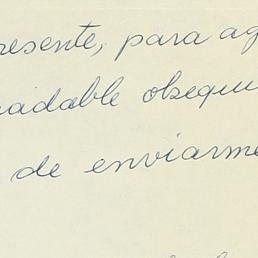 resente, para ag
adable obsequi
de enviarme